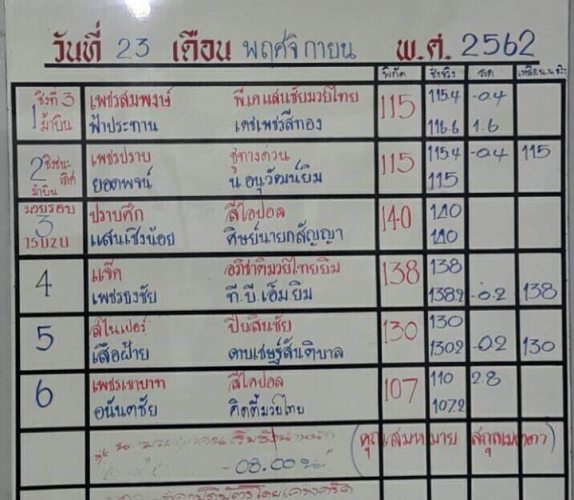 วันที่ 23 เดือน พฤศจิกายน พ.ศ. 2562
พิกัด ชั่งจริง ลด เหลือน.น.จริง
ชิงที่ 3 เพชรสมพงษ์ พี.เค.แสนชัยมวยไทย 115 115.4 -0.4
1 ม้าบิน ฟ้าประทาน เดชเพชรสีทอง 116.6 1.6
2 ชิงชนะเลิศ เพชรปราบ ชูทางด่วน 115 115.4 -0.4 115
ม้าบิน ยอดพจน์ น.อนุวัฒน์ยิม 115
มวยรอบ ปราบศึก สีโอปอล 140 140
3 แสนเชิงน้อย ศิษย์นายกสัญญา 140
4 แจ๊ค อภิชาติมวยไทยยิม 138 138
เพชรธงชัย ที.บี.เอ็ม.ยิม 138.2 -0.2 138
5 สไนเปอร์ ปืนสินชัย 130 130
เสือฝ้าย ดาบเชษฐ์สันติบาล 130.2 -0.2 130
6 เพชรเขาบาท สีโอปอล 107 110 2.8
อนันตชัย คิดดี้มวยไทย 107.2
(คุณสมหมาย
08.00 น.